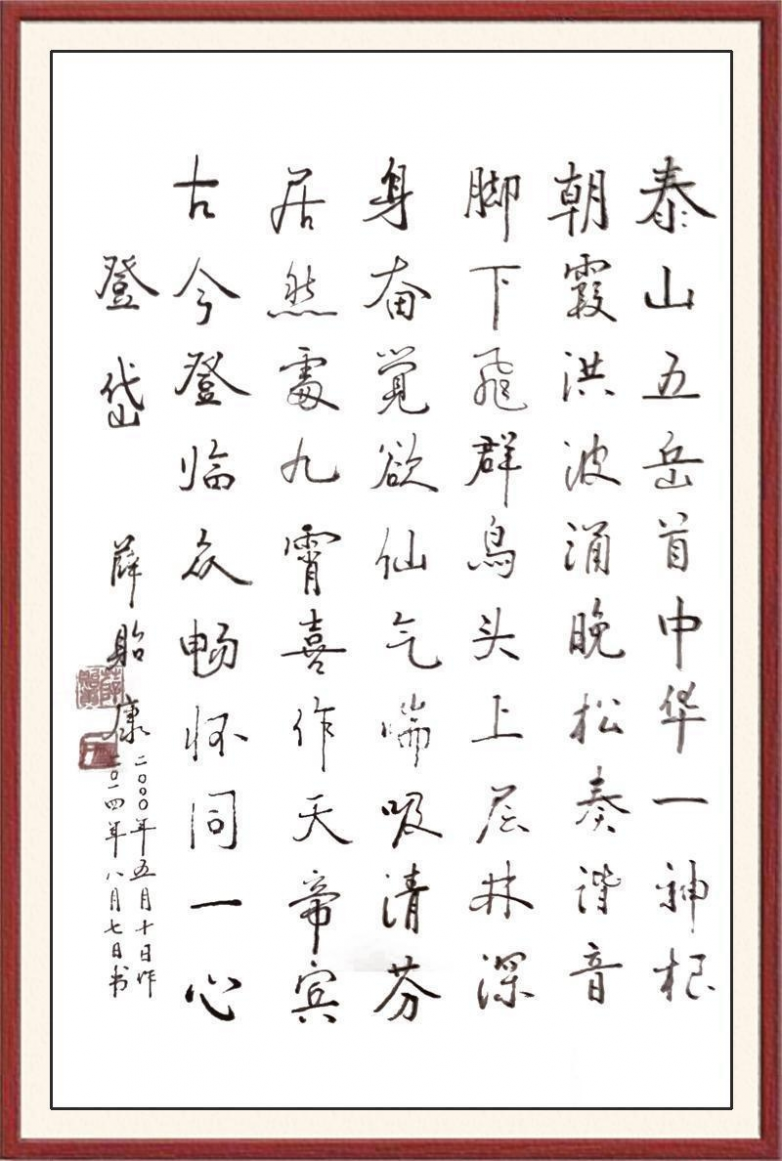 泰山五岳首中华一神根
朝霞洪波涌晚松奏谐音
脚下飞群鸟头上层林深
身奋觉欲仙气喘吸清芬
居然九霄喜作天帝宾
古今登临众畅怀同一心
登岱 薛贻康
二〇〇〇年五月十日作
二〇一四年八月七日书